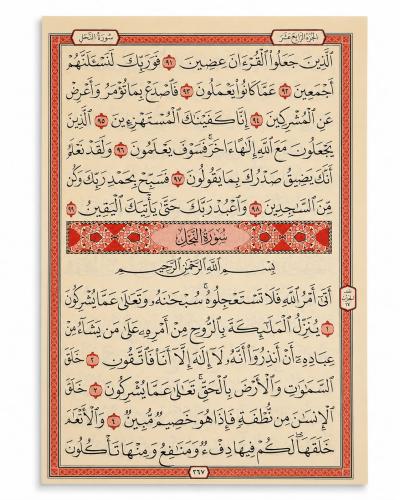 سورة النحل
الجزء الرابع عشر
الَّذِينَ جَعَلُوا الْقُرْءَانَ عِضِينَ ٩١ فَوَرَبِّكَ لَنَسْـَٔلَنَّهُمْ
أَجْمَعِينَ ٩٢ عَمَّا كَانُوا يَعْمَلُونَ ٩٣ فَاصْدَعْ بِمَا تُؤْمَرُ وَأَعْرِضْ
عَنِ الْمُشْرِكِينَ ٩٤ إِنَّا كَفَيْنَاكَ الْمُسْتَهْزِءِينَ ٩٥ الَّذِينَ
يَجْعَلُونَ مَعَ اللَّهِ إِلَٰهًا ءَاخَرَ فَسَوْفَ يَعْلَمُونَ ٩٦ وَلَقَدْ نَعْلَمُ
أَنَّكَ يَضِيقُ صَدْرُكَ بِمَا يَقُولُونَ ٩٧ فَسَبِّحْ بِحَمْدِ رَبِّكَ وَكُن
مِّنَ السَّاجِدِينَ ٩٨ وَاعْبُدْ رَبَّكَ حَتَّىٰ يَأْتِيَكَ الْيَقِينُ ٩٩
سُورَةُ النَّحْلِ
بِسْمِ اللَّهِ الرَّحْمَٰنِ الرَّحِيمِ
أَتَىٰ أَمْرُ اللَّهِ فَلَا تَسْتَعْجِلُوهُ سُبْحَٰنَهُ وَتَعَالَىٰ عَمَّا يُشْرِكُونَ
١ يُنَزِّلُ الْمَلَٰٓئِكَةَ بِالرُّوحِ مِنْ أَمْرِهِ عَلَىٰ مَن يَشَاءُ مِنْ
عِبَادِهِ أَنْ أَنذِرُوا أَنَّهُ لَا إِلَٰهَ إِلَّا أَنَا فَاتَّقُونِ ٢ خَلَقَ
السَّمَٰوَٰتِ وَالْأَرْضَ بِالْحَقِّ تَعَالَىٰ عَمَّا يُشْرِكُونَ ٣ خَلَقَ
الْإِنسَٰنَ مِن نُّطْفَةٍ فَإِذَا هُوَ خَصِيمٌ مُّبِينٌ ٤ وَالْأَنْعَٰمَ
خَلَقَهَا لَكُمْ فِيهَا دِفْءٌ وَمَنَٰفِعُ وَمِنْهَا تَأْكُلُونَ
٢٦٧